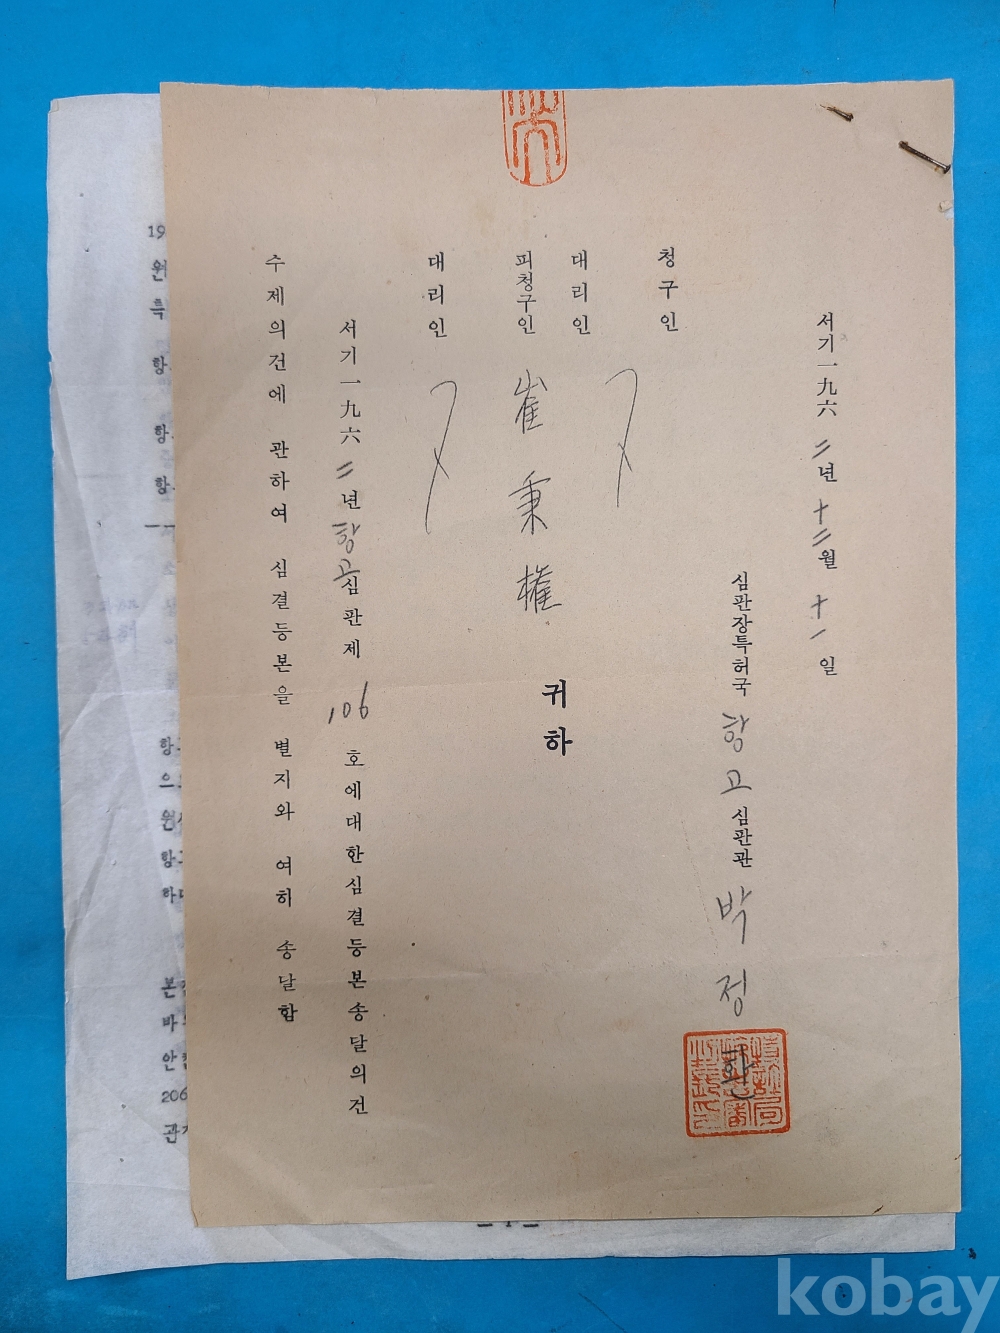 서기一九六二년十二월十一일
심판장특허국 항고심판관 박정환
청구인
대리인
피청구인 崔秉權 귀하
대리인
서기一九六二년항고심판제106호에대한심결등본송달의건
수제의건에 관하여 심결등본을 별지와 여히 송달함
19
원
특
항
항
항
항
으
원
항
하
본
바
안
206
관
kobay